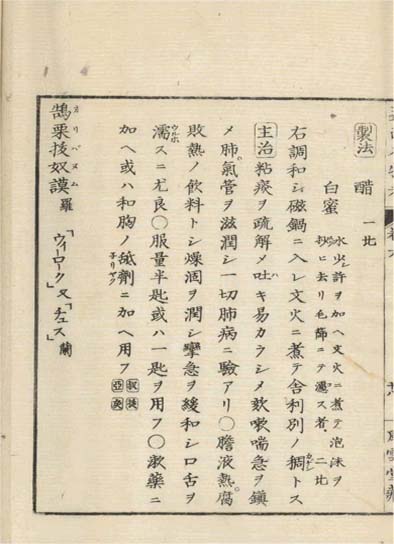 製法 醋 一比
白蜜 水少許ヲ加ヘ文火ニ煮テ泡沫ヲ
去リ毛篩ニテ濾ス者 二比
右調和シ磁鍋ニ入レ文火ニ煮テ舎利別ノ稠トス
主治 粘痰ヲ疏解メ吐キ易カラシメ欬嗽喘急ヲ鎮
メ肺。氣管ヲ滋潤シ一切肺病ニ驗アリ〇膽液熱。腐
敗熱ノ飲料トシ燥涸ヲ潤シ攣急ヲ緩和シ口舌ヲ
濡スニ尤良〇服量半匙或ハ一匙ヲ用フ〇漱藥ニ
加ヘ或ハ和胸ノ舐劑ニ加ヘ用フ
鵠栗抜奴謨 羅 「ウィーローク」又「チェス」蘭